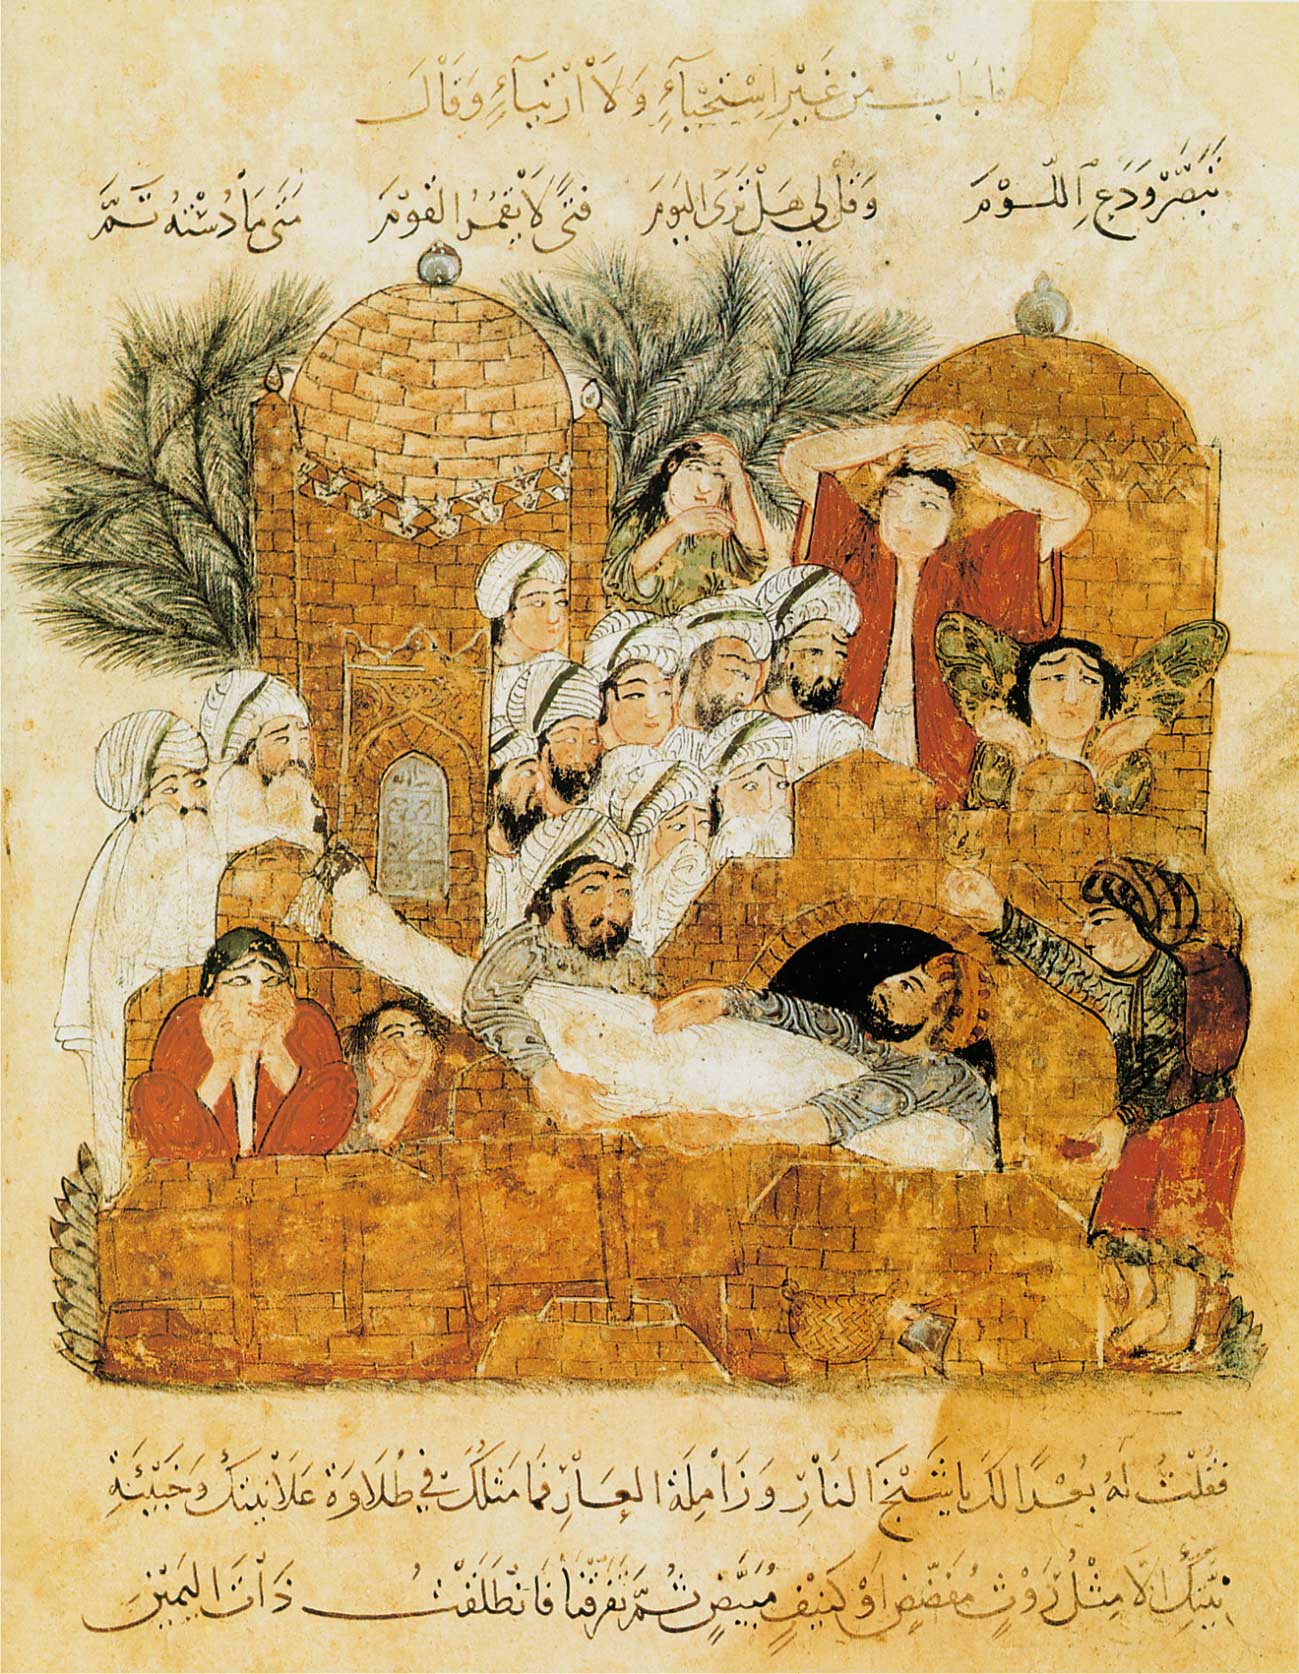 فَاجَابَ مِنْ غَيْرِ اسْتِحْيَآءٍ وَلَا ارْتِيَآءٍ وَقَالَ
تَبَصَّرْ وَدَعِ اللَّوْمَ وَقُلْ لِي هَلْ تَرَى الْيَوْمَ فَتًى لَا يَقْمُرُ الْقَوْمَ مَتَى مَا دُسْتُهُ تَمَّ
فَقُلْتُ لَهُ بُعْدًا لَكَ يَا شَيْخَ النَّارِ وَزَامِلَةَ الْعَارِ فَمَا مَثَلُكَ فِي طُلَاوَةِ عَلَانِيَتِكَ وَخَبِيْئَةِ
نِيَّتِكَ اِلَّا مِثْلُ رَوْثٍ مُفَضَّضٍ اَوْ كَنِيْفٍ مُبَيَّضٍ ثُمَّ تَفَرَّقْنَا فَانْطَلَقْتُ ذَاتَ الْيَمِيْنِ